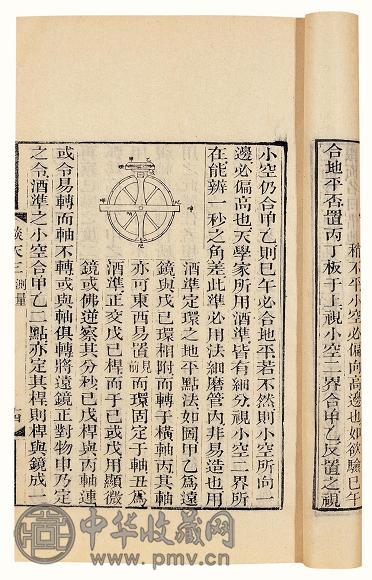 稍不平小空必偏向高邊也如欲驗巳午
合地平否置丙丁板于上視小空二界合甲乙反置之視
小空仍合甲乙則巳午必合地平若不然則小空所向一
邊必偏高也天學家所用酒準皆有細分視小空二界所
在能辨一秒之角差此準必用法細磨管內非易造也用
酒準定環之地平點法如圖甲乙爲遠
鏡與戊巳環相附而轉於橫軸丙其軸
亦可東西易置見前而環固定于軸丑爲
酒準正交戊巳桿而于巳或戊用顯微
鏡或佛逆察其分秒巳戊桿與丙軸連
或令易轉而軸不轉或與軸俱轉將遠鏡正對物申乃定
之令酒準之小空合甲乙二點亦定其桿則桿與鏡成一
談天三 測量
中华收藏网
www.pmv.cn